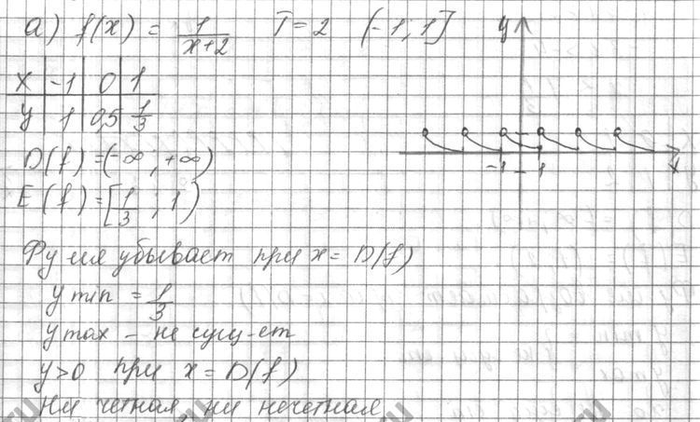 а) f(x) = 1/(x+2) T=2 (-1; 1] y
x | -1 | 0 | 1
y | 1 | 0,5 | 1/3
-1 1 x
D(f) = (-∞; +∞)
E(f) = [1/3; 1)
Фу-ия убывает при x = D(f)
y min = 1/3
y max - не сущ-ет
y>0 при x = D(f)
Ни четная, ни нечетная